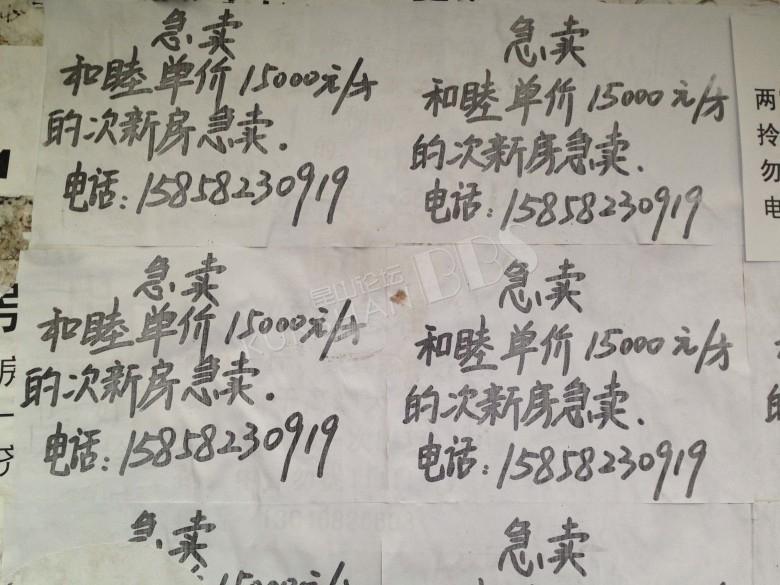 急卖
和睦单价15000元/方
的次新房急卖.
电话:15858230919
急卖
和睦单价15000元/方
的次新房急卖.
电话:15858230919
两
拎
勿
电
急卖
和睦单价15000元/方
的次新房急卖.
电话:15858230919
急卖
和睦单价15000元/方
的次新房急卖.
电话:15858230919
昆山论坛
KUNSHAN BBS
急卖
15000元/方
急卖